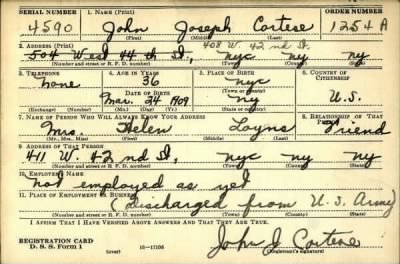 SERIAL NUMBER 1. NAME (Print) ORDER NUMBER
4590 John Joseph Cortese 1254A
(First) (Middle) (Last)
2. ADDRESS (Print) 408 W. 42 nd St.
504 West 44 th St, nyc ny ny
(Number and street or R. F. D. number) (Town) (County) (State)
3. TELEPHONE 4. AGE IN YEARS 5. PLACE OF BIRTH 6. COUNTRY OF CITIZENSHIP
none 36 nyc
DATE OF BIRTH (Town or county)
Mar. 24 1909 ny U.S.
(Exchange) (Number) (Mo.) (Day) (Yr.) (State or country)
7. NAME OF PERSON WHO WILL ALWAYS KNOW YOUR ADDRESS 8. RELATIONSHIP OF THAT PERSON
Mrs. Helen Loyns Friend
(Mr., Mrs., Miss) (First) (Middle) (Last)
9. ADDRESS OF THAT PERSON
411 W. 42 nd St, nyc ny ny
(Number and street or R. F. D. number) (Town) (County) (State)
10. EMPLOYER'S NAME
not employed as yet
11. PLACE OF EMPLOYMENT OR BUSINESS
(discharged from U.S. Army)
(Number and street or R. F. D. number) (Town) (County) (State)
I AFFIRM THAT I HAVE VERIFIED ABOVE ANSWERS AND THAT THEY ARE TRUE.
REGISTRATION CARD
D. S. S. Form 1 (over) John J Cortese
(Registrant's signature)